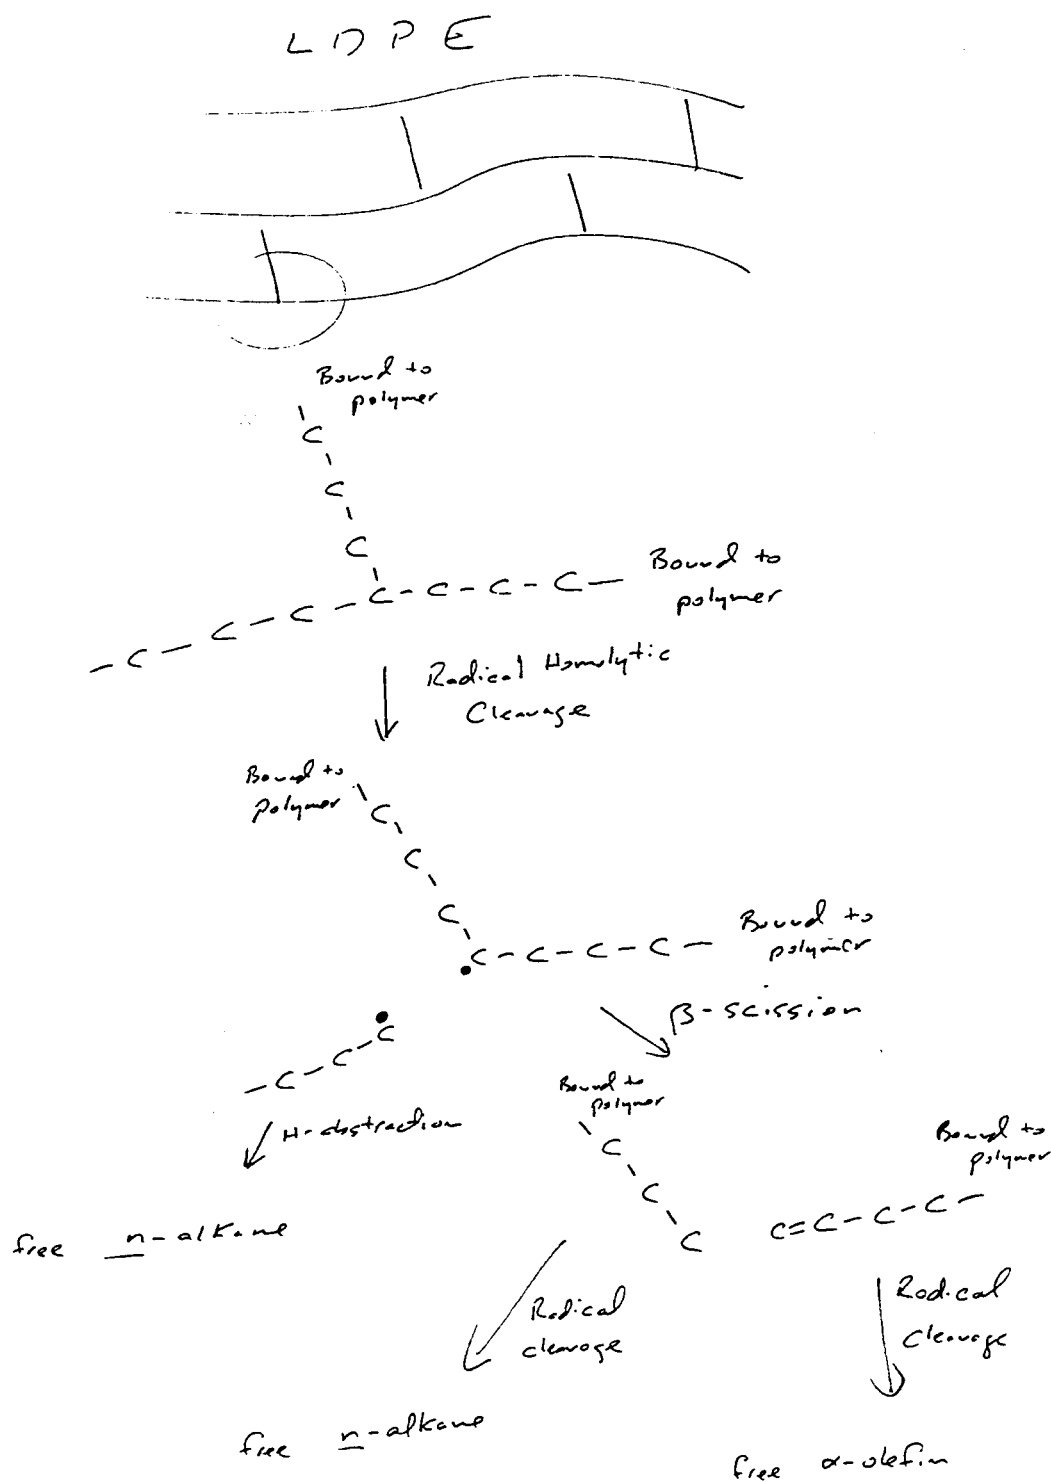 LDPE
Bound to
polymer
C
C
C
- C - C - C - C - C - C - C - Bound to
polymer
Radical Homolytic
Cleavage
Bound to
polymer
C
C
C
C - C - C - C - Bound to
polymer
- C - C - C
β-scission
H-abstraction
Bound to
polymer
C
C
C
Bound to
polymer
C=C-C-C-C-
free n-alkane
Radical
cleavage
Radical
Cleavage
free n-alkane
free α-olefin